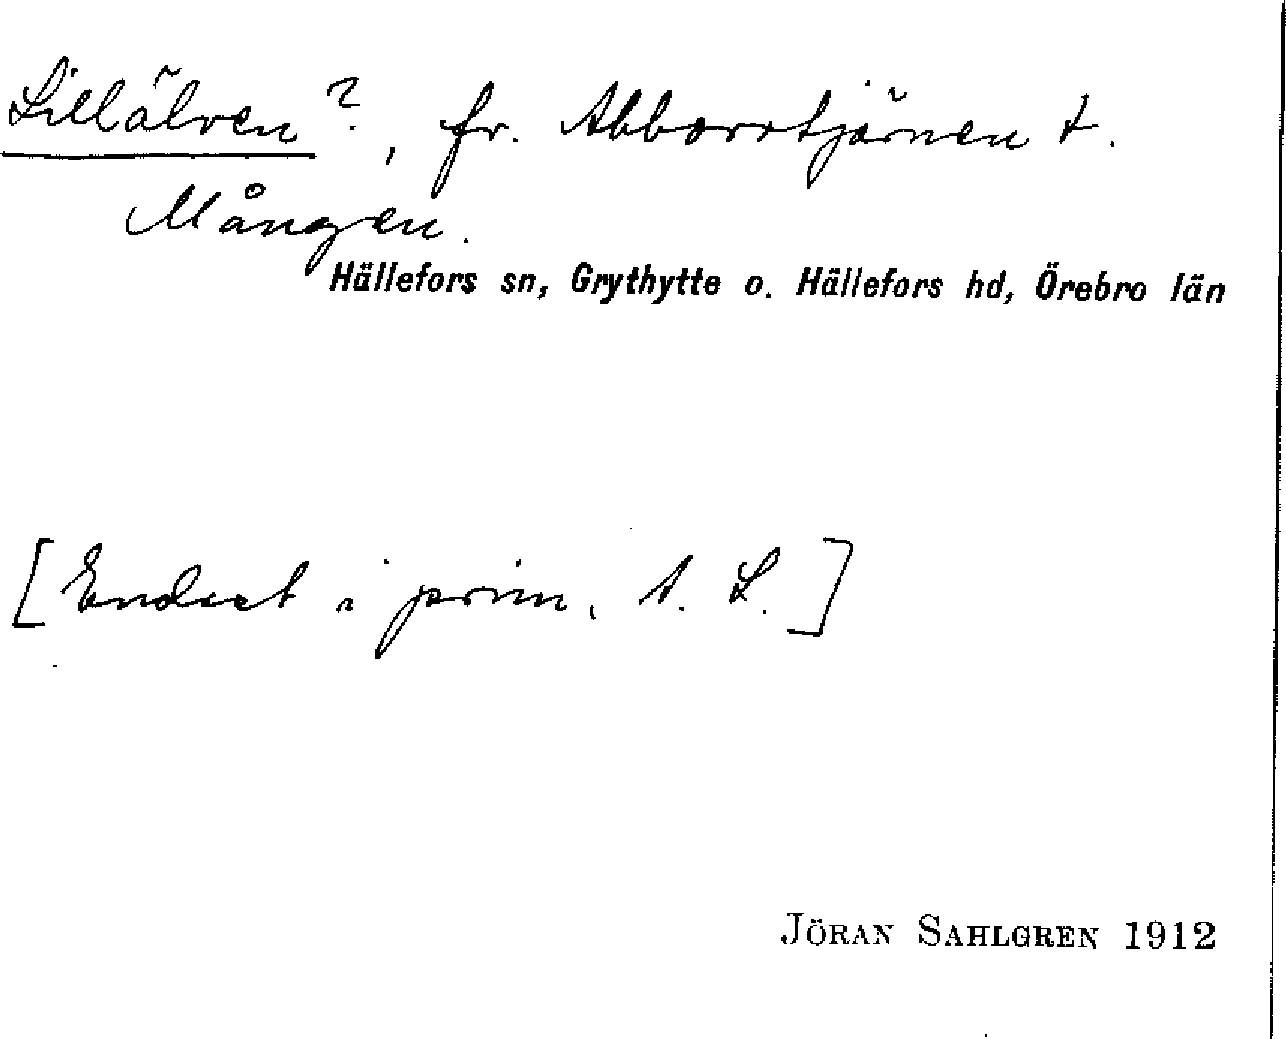 Lillälven?, fr. Abborrtjärnen t.
Mången.
Hällefors sn, Grythytte o. Hällefors hd, Örebro län
[Endast i prim. A. L.]
JÖRAN SAHLGREN 1912